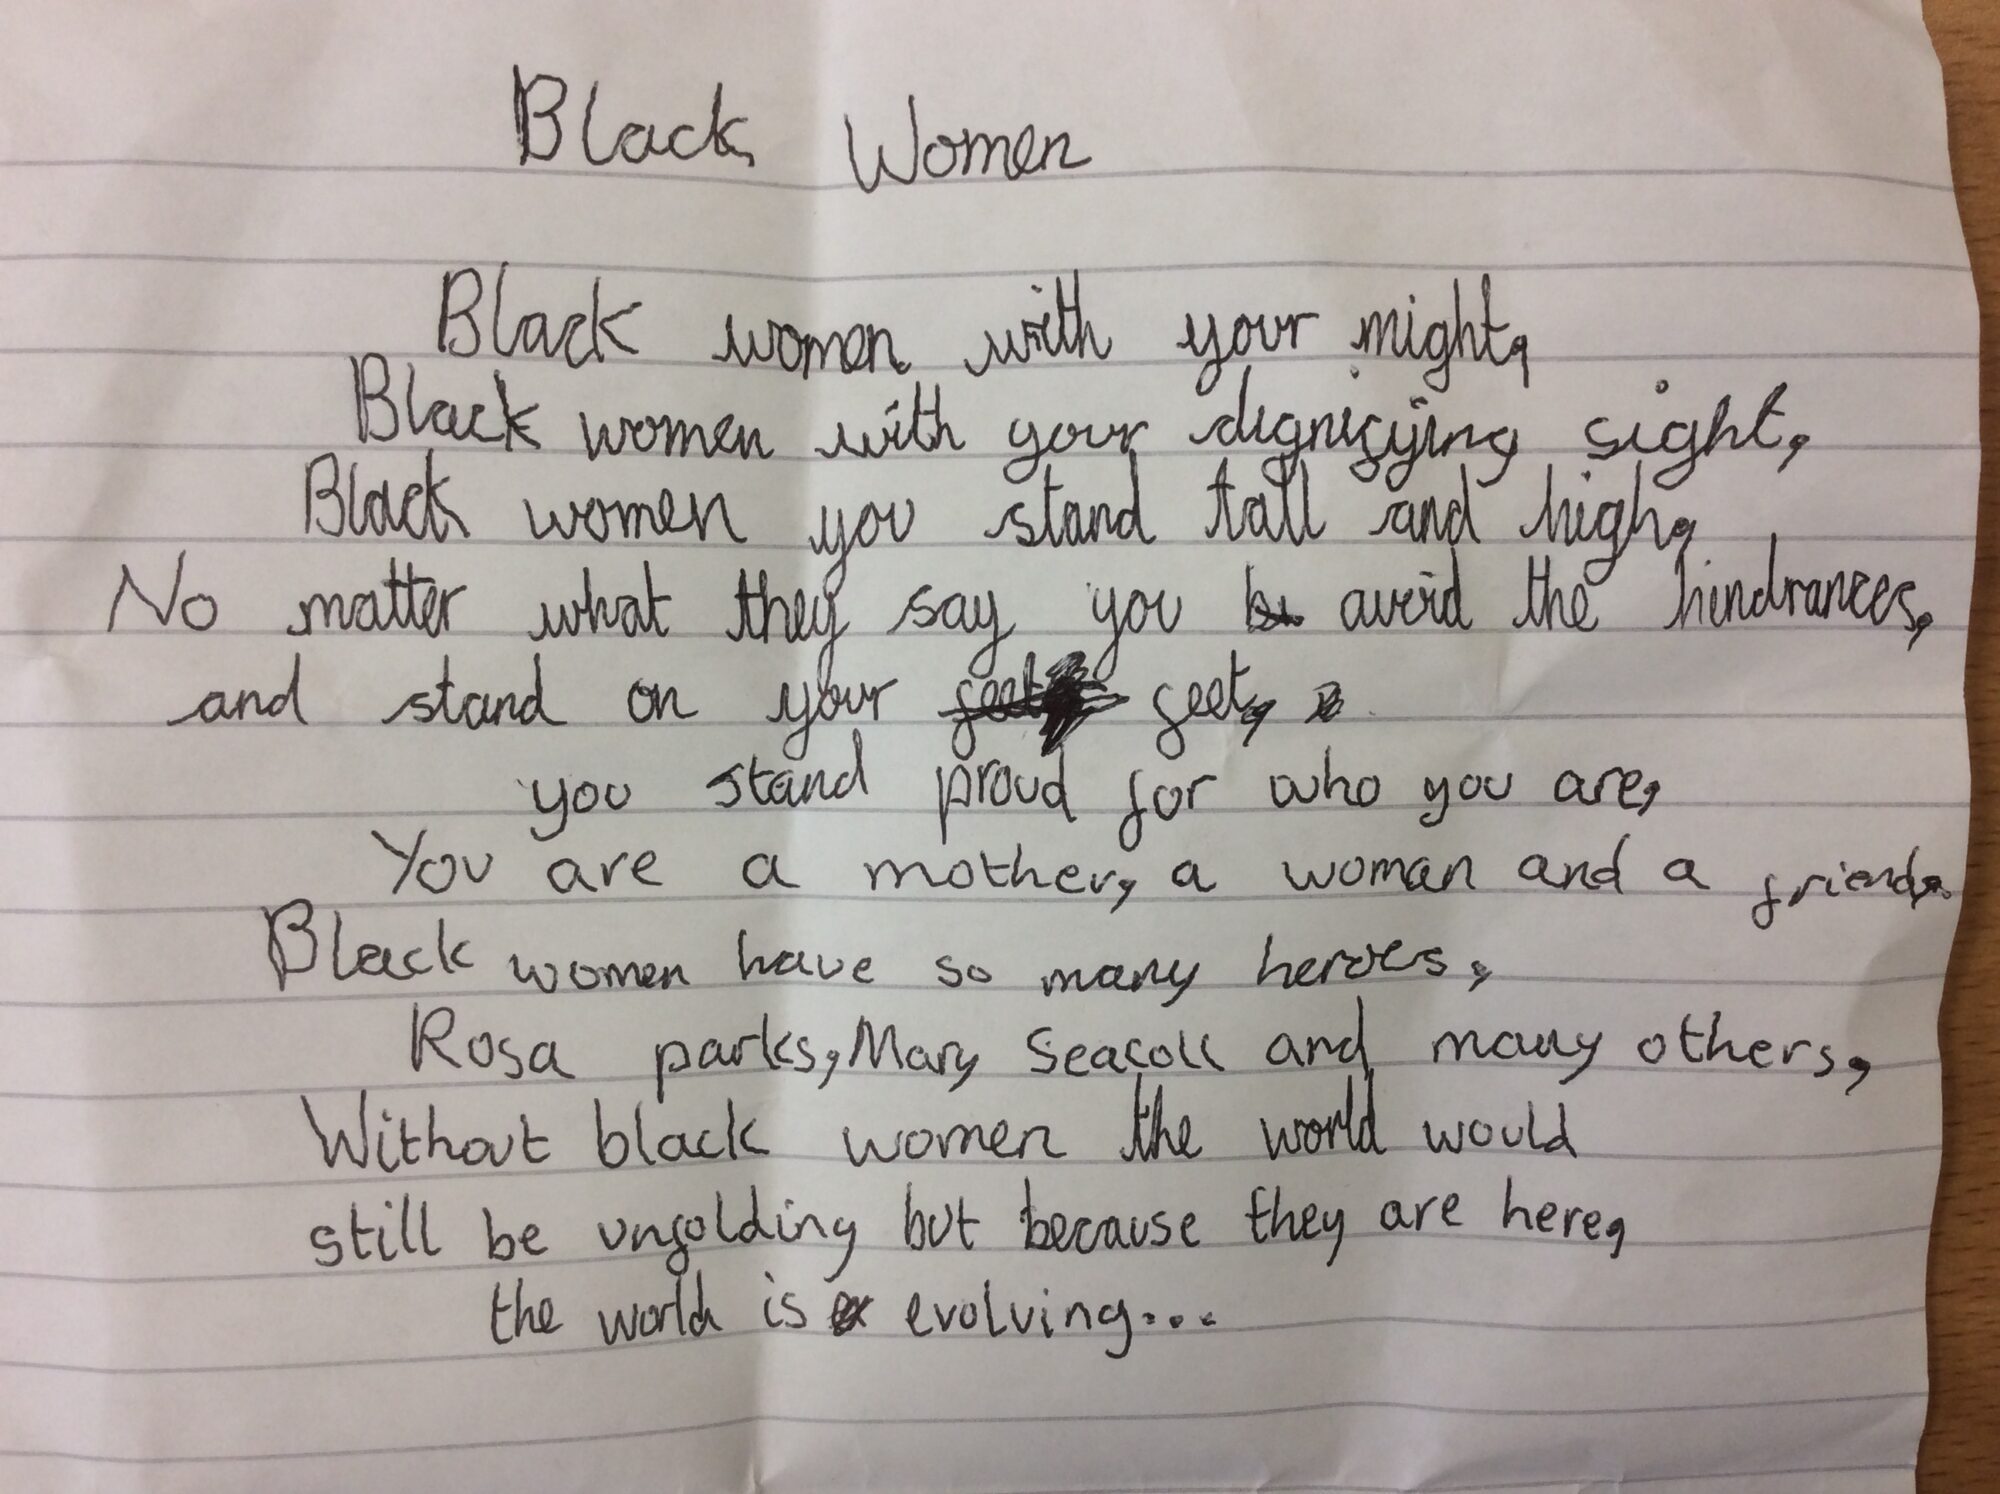 Black Women
Black women with your might,
Black women with your dignifying sight,
Black women you stand tall and high,
No matter what they say you avoid the hindrances,
and stand on your feet feet,
you stand proud for who you are,
You are a mother, a woman and a friend.
Black women have so many heroes,
Rosa parks, Mary Seacoll and many others,
Without black women the world would
still be unfolding but because they are here,
the world is evolving...